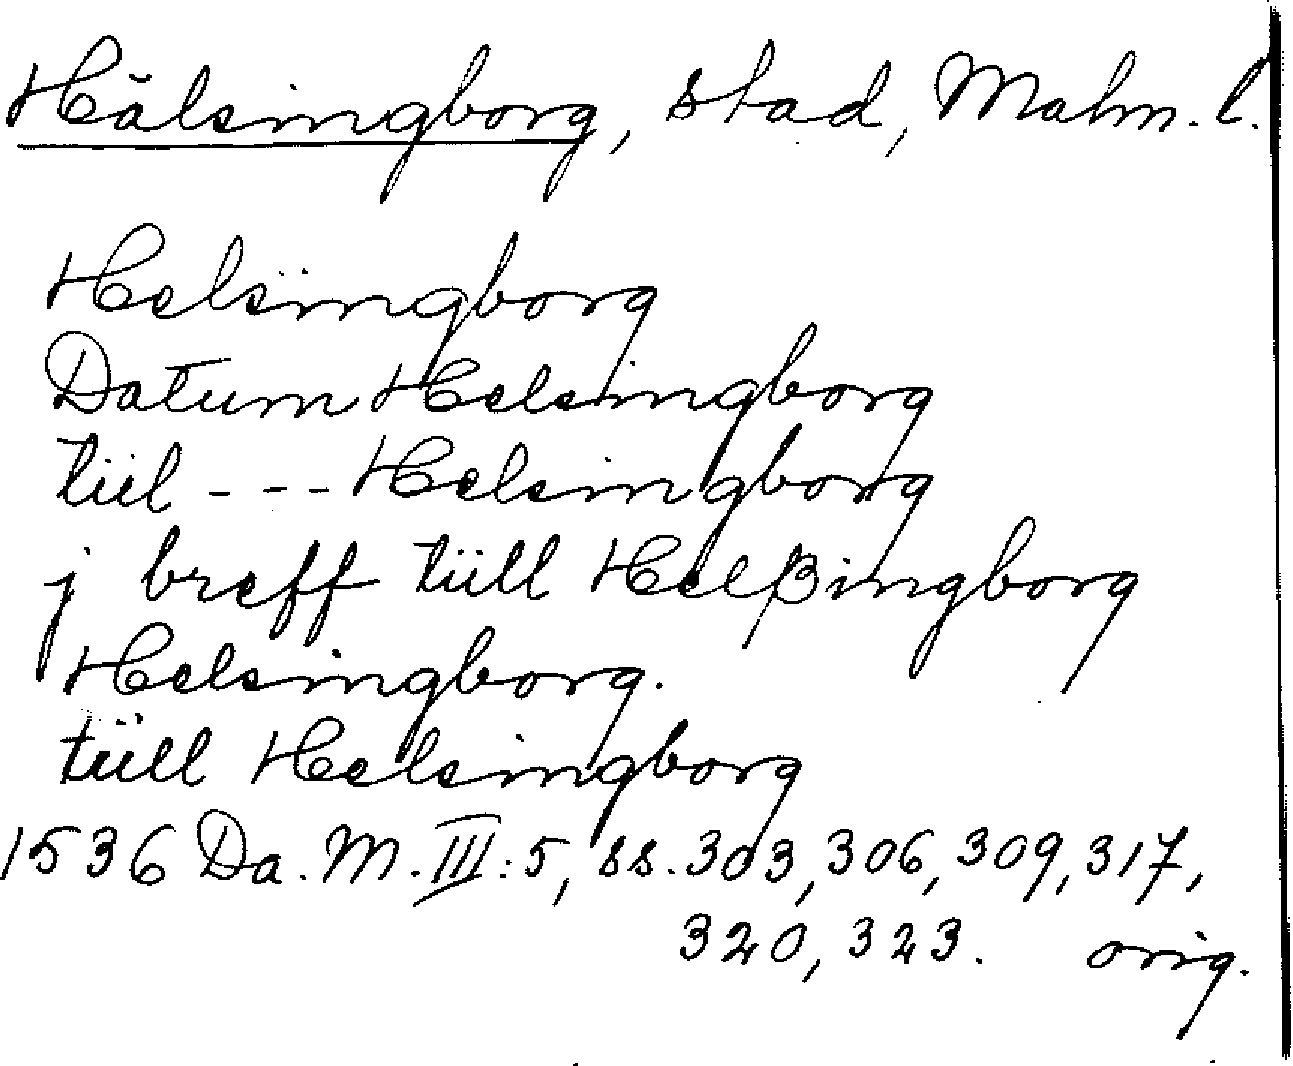 Hälsingborg, stad, Malm. l.
Helsïngborg
Datum Helsingborg
tiil - - - Helsingborg
j breff tiill Helßingborg
Helsingborg.
tüll Helsingborg
1536 Da. M. III: 5, ss. 303, 306, 309, 317,
320, 323. orig.